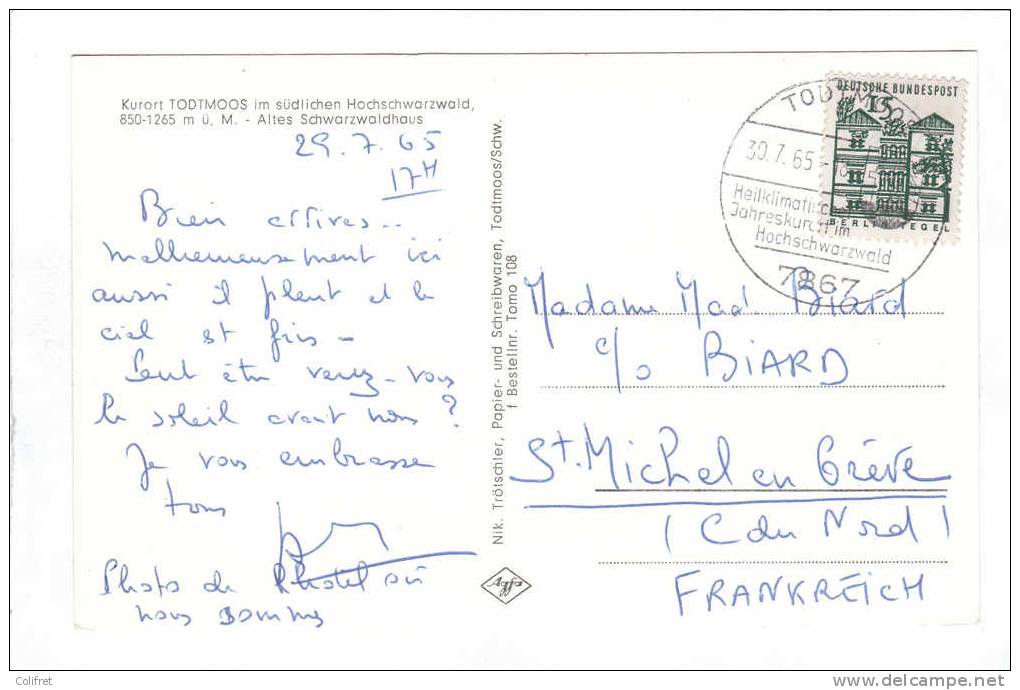 Kurort TODTMOOS im südlichen Hochschwarzwald,
850-1265 m ü. M. - Altes Schwarzwaldhaus
29.7.65
17H
Bien arrivés..
malheureusement ici
aussi il pleut et le
ciel est gris -
Peut être verrez-vous
le soleil avant nous ?
Je vous embrasse
tous
Photo de l'hotel où
nous sommes
Nik. Trötschler, Papier- und Schreibwaren, Todtmoos/Schw.
f Bestellnr. Tomo 108
Agfa
DEUTSCHE BUNDESPOST
15
BERLIN-TEGEL
TODTMOOS
30.7.65
Heilklimatisch
Jahreskurort im
Hochschwarzwald
7867
Madame Mad. Biard
c/o BIARD
St. Michel en Grève
(C du Nord)
FRANKREICH
Colifret
www.delcampe.net